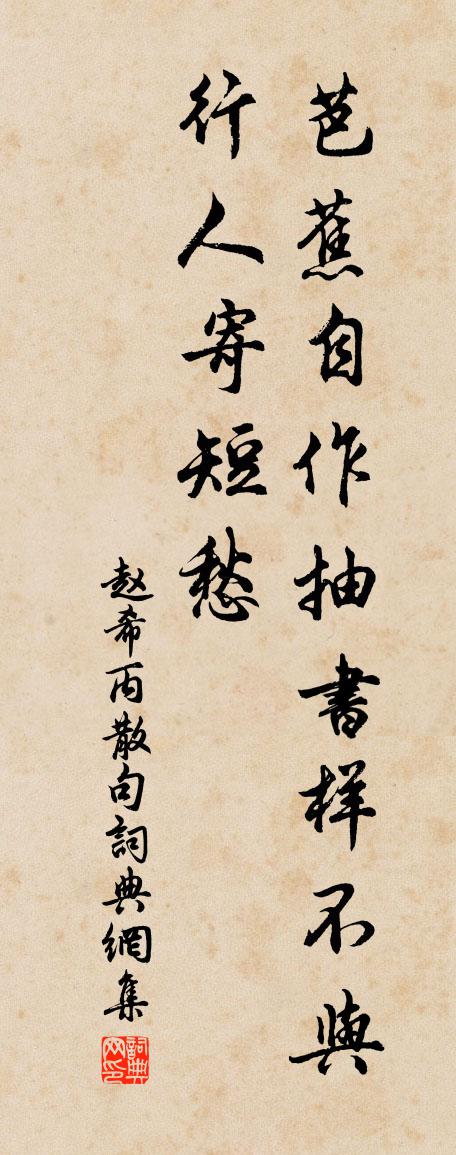 芭蕉自作抽書样不與
行人寄短愁
赵希丙散句詞典網集
詞典网印